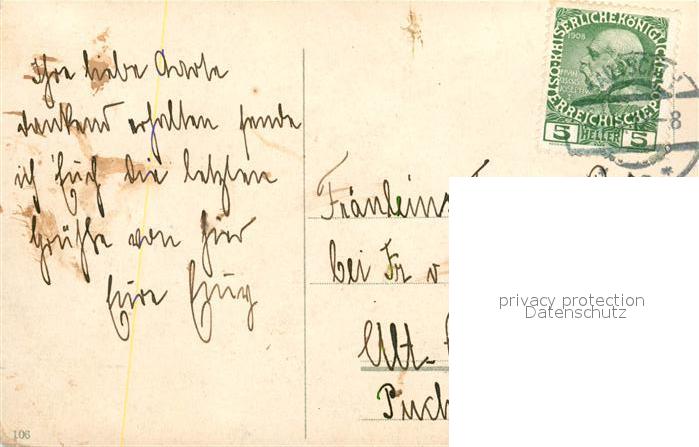 Ihre liebe Karte
dankend erhalten sende
ich Euch die letzten
Grüße von hier
Eure
106
KAISERLICHE KÖNIGLICHE
ÖSTERREICHISCHE
1908
5 HELLER 5
8
Fräulein
bei Fr v
Alt-
Puch
privacy protection
Datenschutz